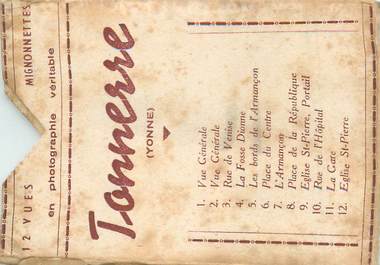 12 VUES MIGNONNETTES
en photographie véritable
Tonnerre
(YONNE)
1. Vue Générale
2. Vue Générale
3. Rue de Venise
4. La Fosse Dionne
5. Les bords de l'Armançon
6. Place du Centre
7. L'Armançon
8. Place de la République
9. Eglise St-Pierre, Portail
10. Rue de l'Hôpital
11. La Gare
12. Eglise St-Pierre